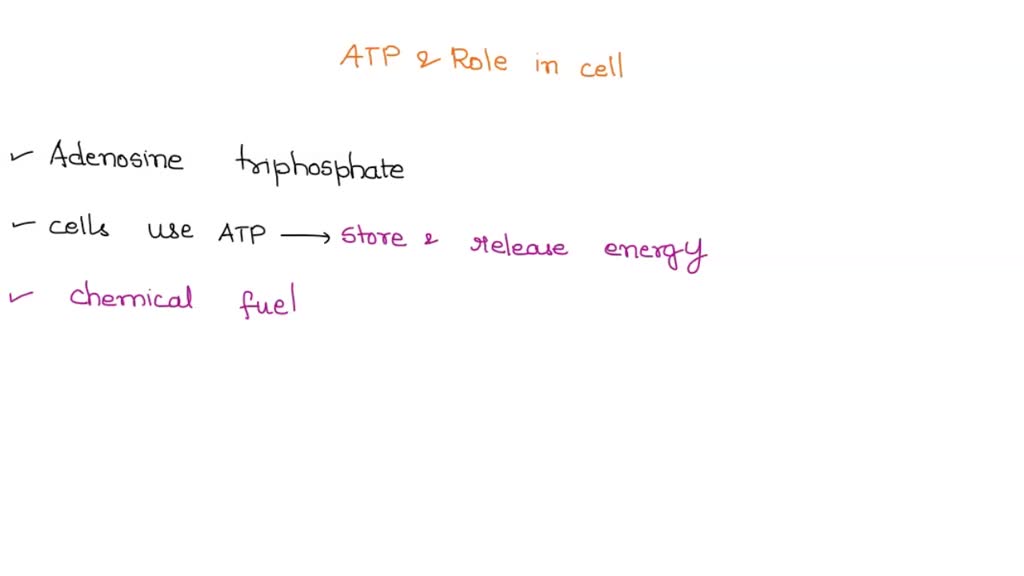 ATP & Role in cell
✓ Adenosine triphosphate
✓ cells use ATP → store & release energy
✓ chemical fuel